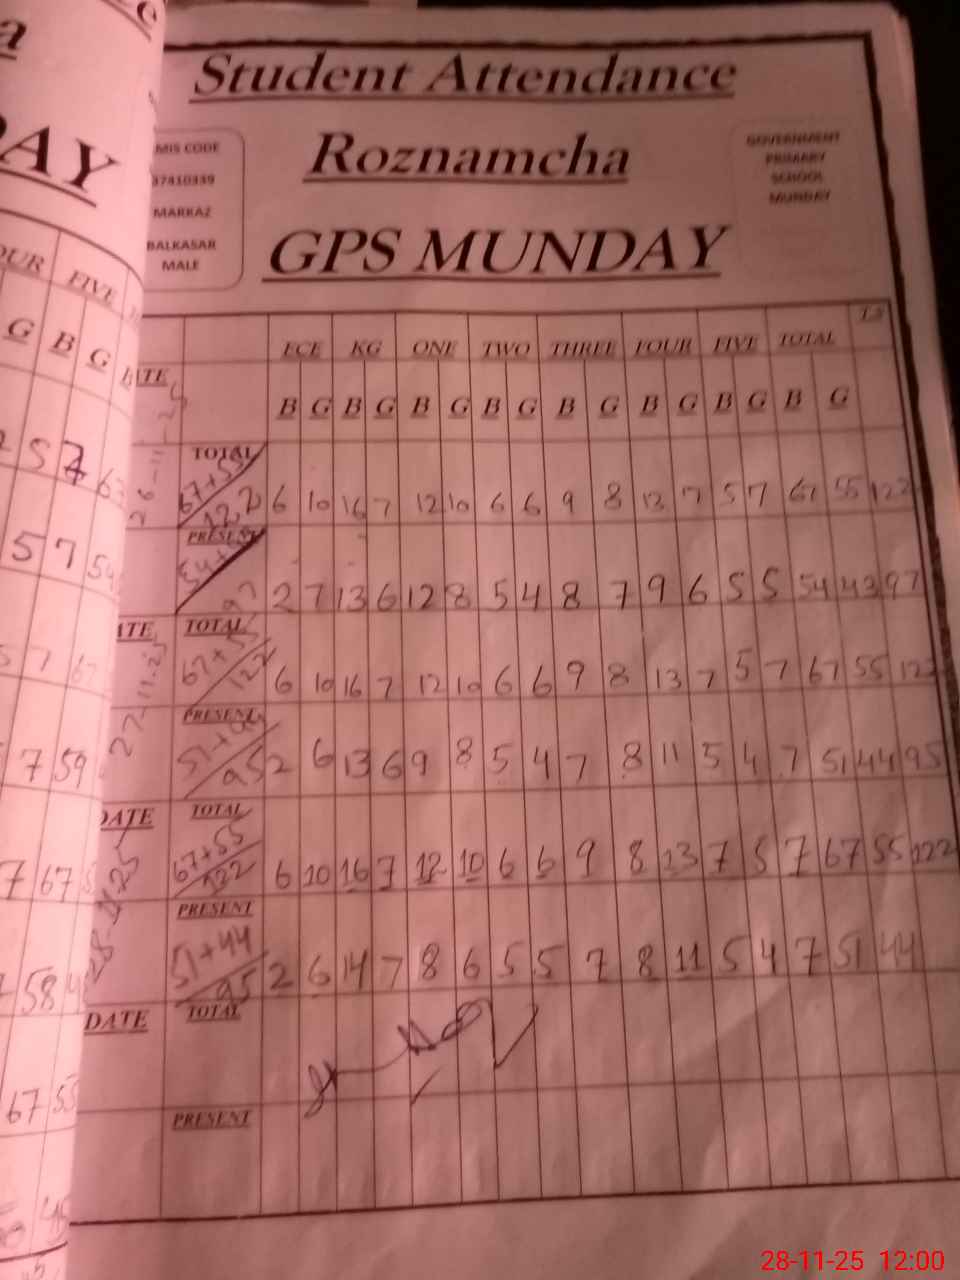 Student Attendance
Roznamcha
GPS MUNDAY
MIS CODE
37410339
MARKAZ
BALKASAR
MALE
GOVERNMENT
PRIMARY
SCHOOL
MUNDAY
AY
OUR FIVE
G B G
5 7
5 7 54
7 67
7 59
7 67
58
67 55
ECE KG ONE TWO THREE FOUR FIVE TOTAL
B G B G B G B G B G B G B G B G
26-11-25 TOTAL 67+55 122 6 10 16 7 12 10 6 6 9 8 13 7 5 7 67 55 122
PRESENT 97 2 7 13 6 12 8 5 4 8 7 9 6 5 5 54 43 97
DATE 27-11-25 TOTAL 67+55 122 6 10 16 7 12 10 6 6 9 8 13 7 5 7 67 55 122
PRESENT 51+44 95 2 6 13 6 9 8 5 4 7 8 11 5 4 7 51 44 95
DATE 28-11-25 TOTAL 67+55 122 6 10 16 7 12 10 6 6 9 8 13 7 5 7 67 55 122
PRESENT 51+44 95 2 6 14 7 8 6 5 5 7 8 11 5 4 7 51 44
DATE TOTAL
PRESENT
28-11-25 12:00